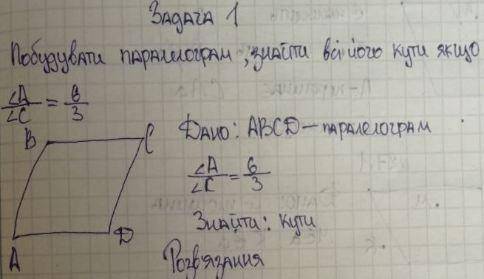 Задача 1
Побудувати паралелограм, знайти всі його кути якщо
∠A/∠C = 6/3
B C
Дано: ABCD – паралелограм
∠A/∠C = 6/3
Знайти: кути
A D
Розв'язання